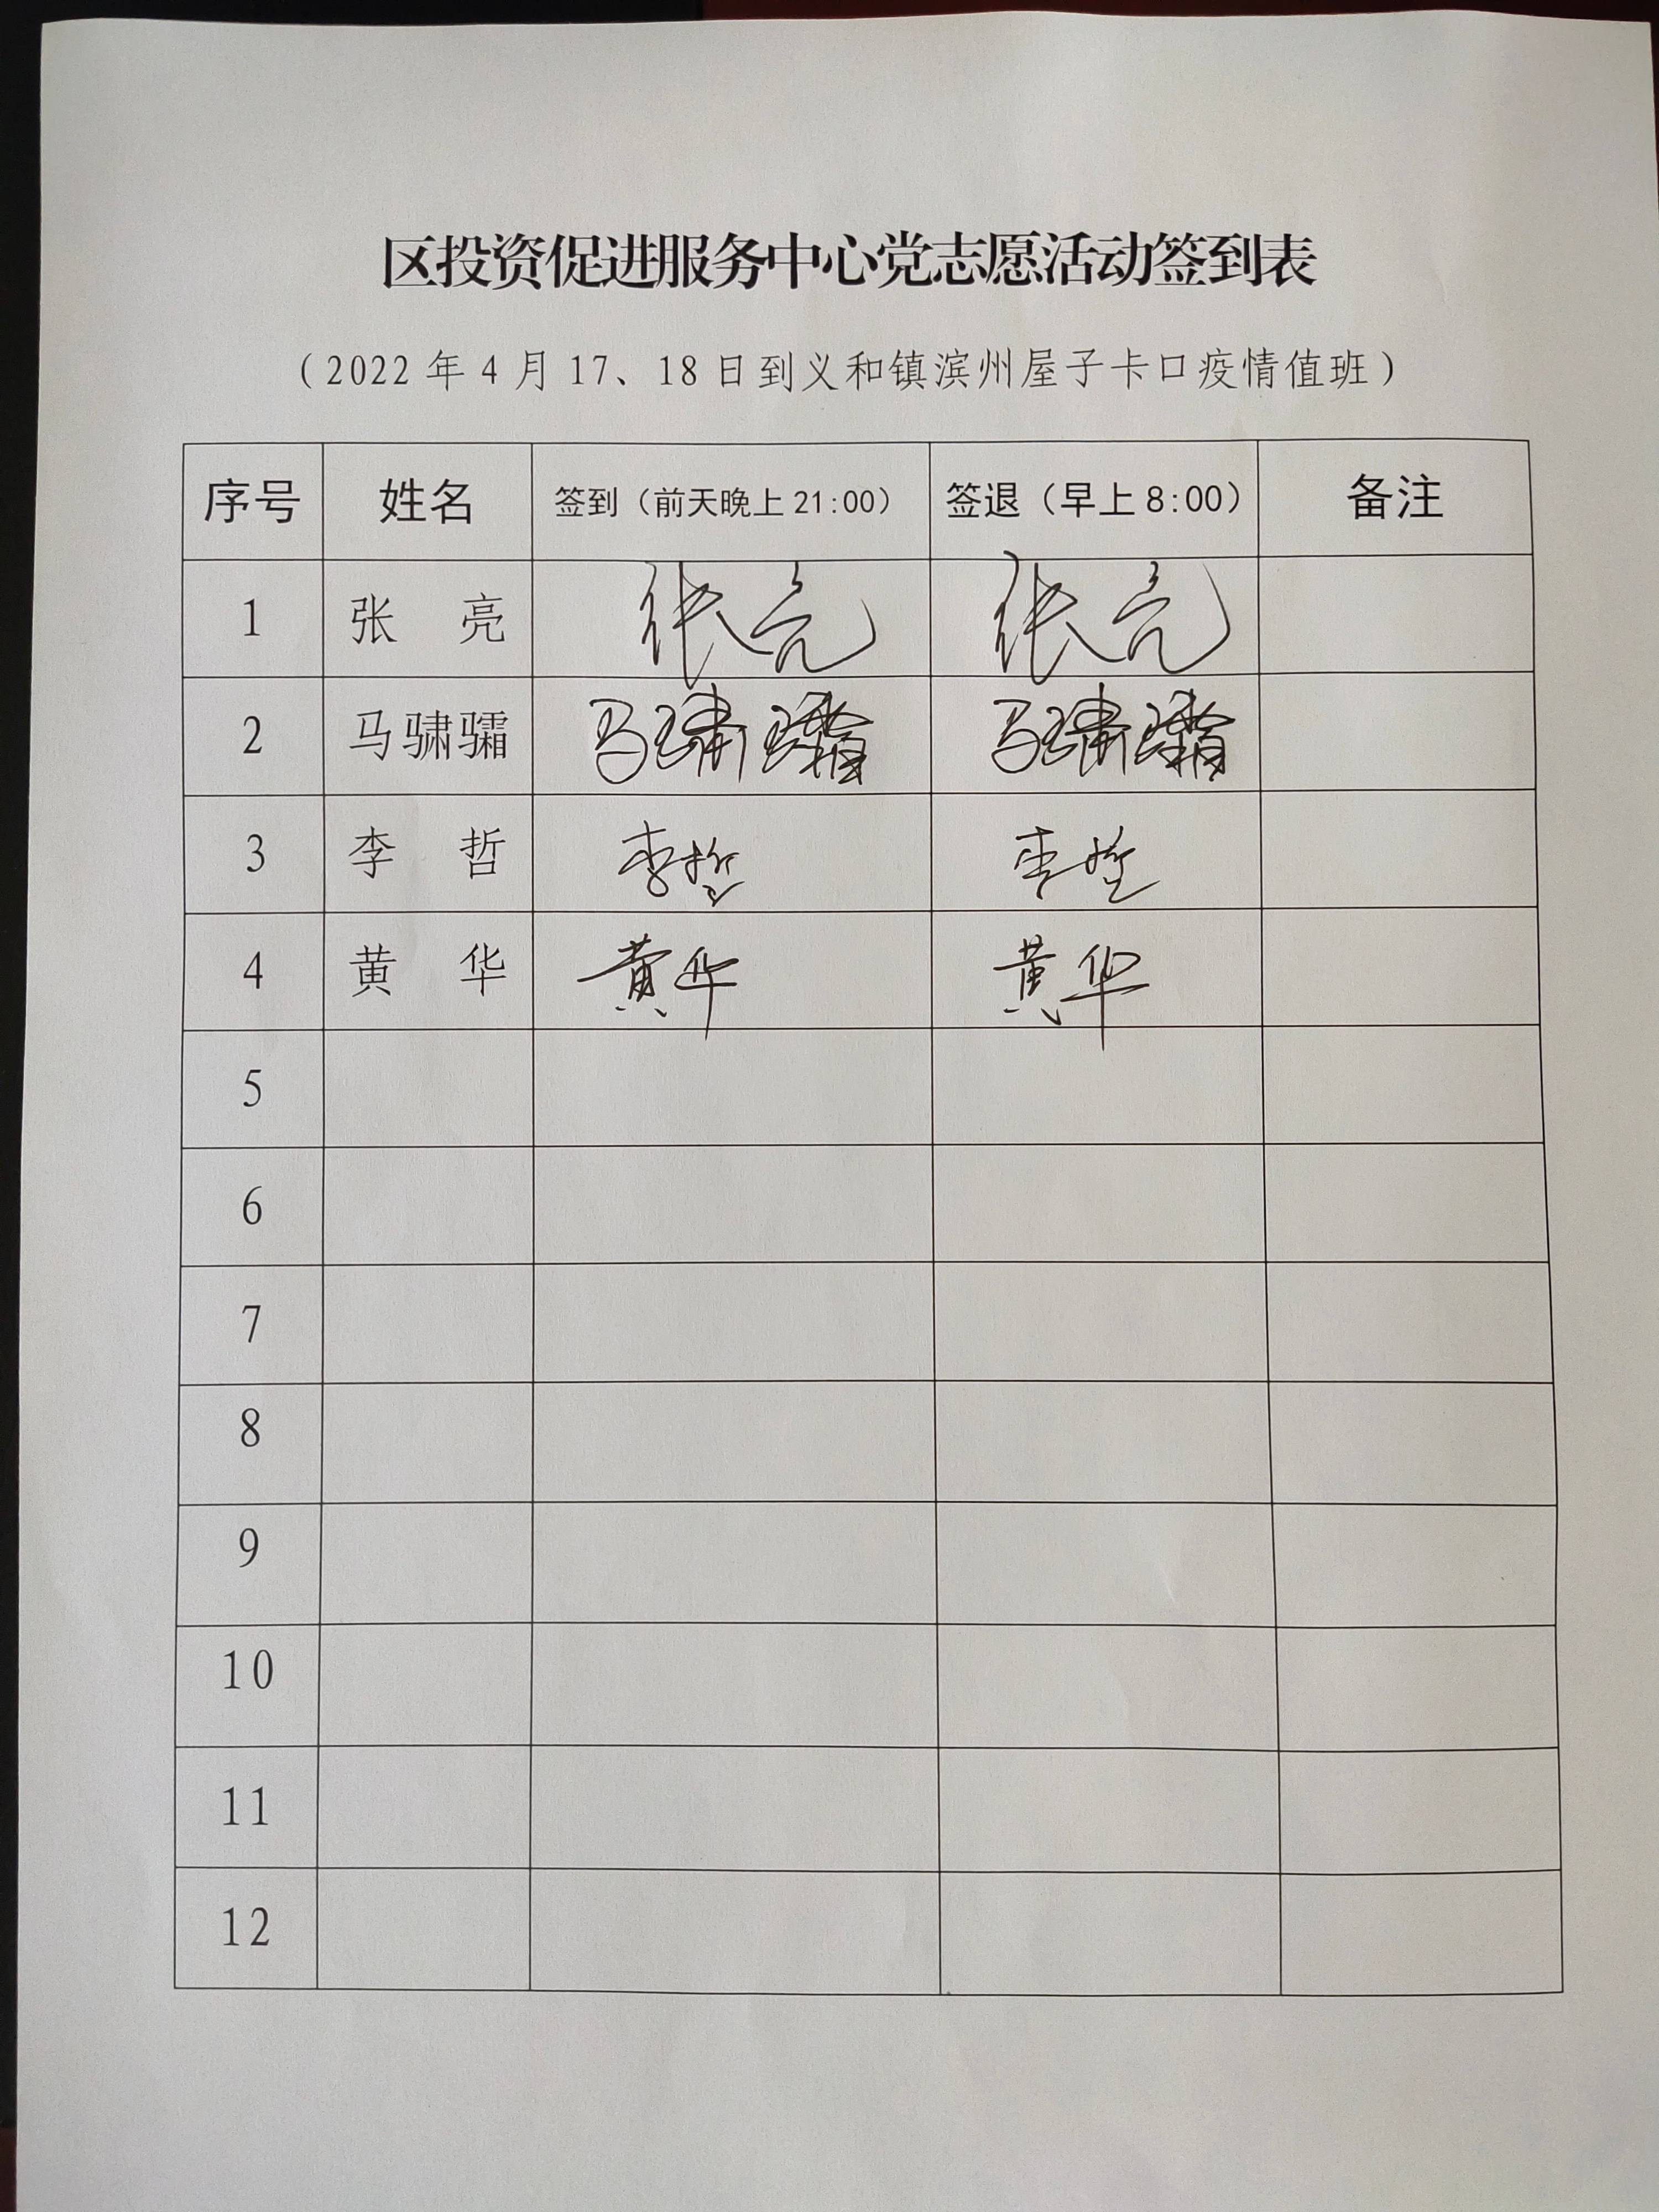 区投资促进服务中心党志愿活动签到表
（2022年4月17、18日到义和镇滨州屋子卡口疫情值班）
序号 姓名 签到（前天晚上21:00） 签退（早上8:00） 备注
1 张 亮 张亮 张亮
2 马骕骦 马骕骦 马骕骦
3 李 哲 李哲 李哲
4 黄 华 黄华 黄华
5
6
7
8
9
10
11
12